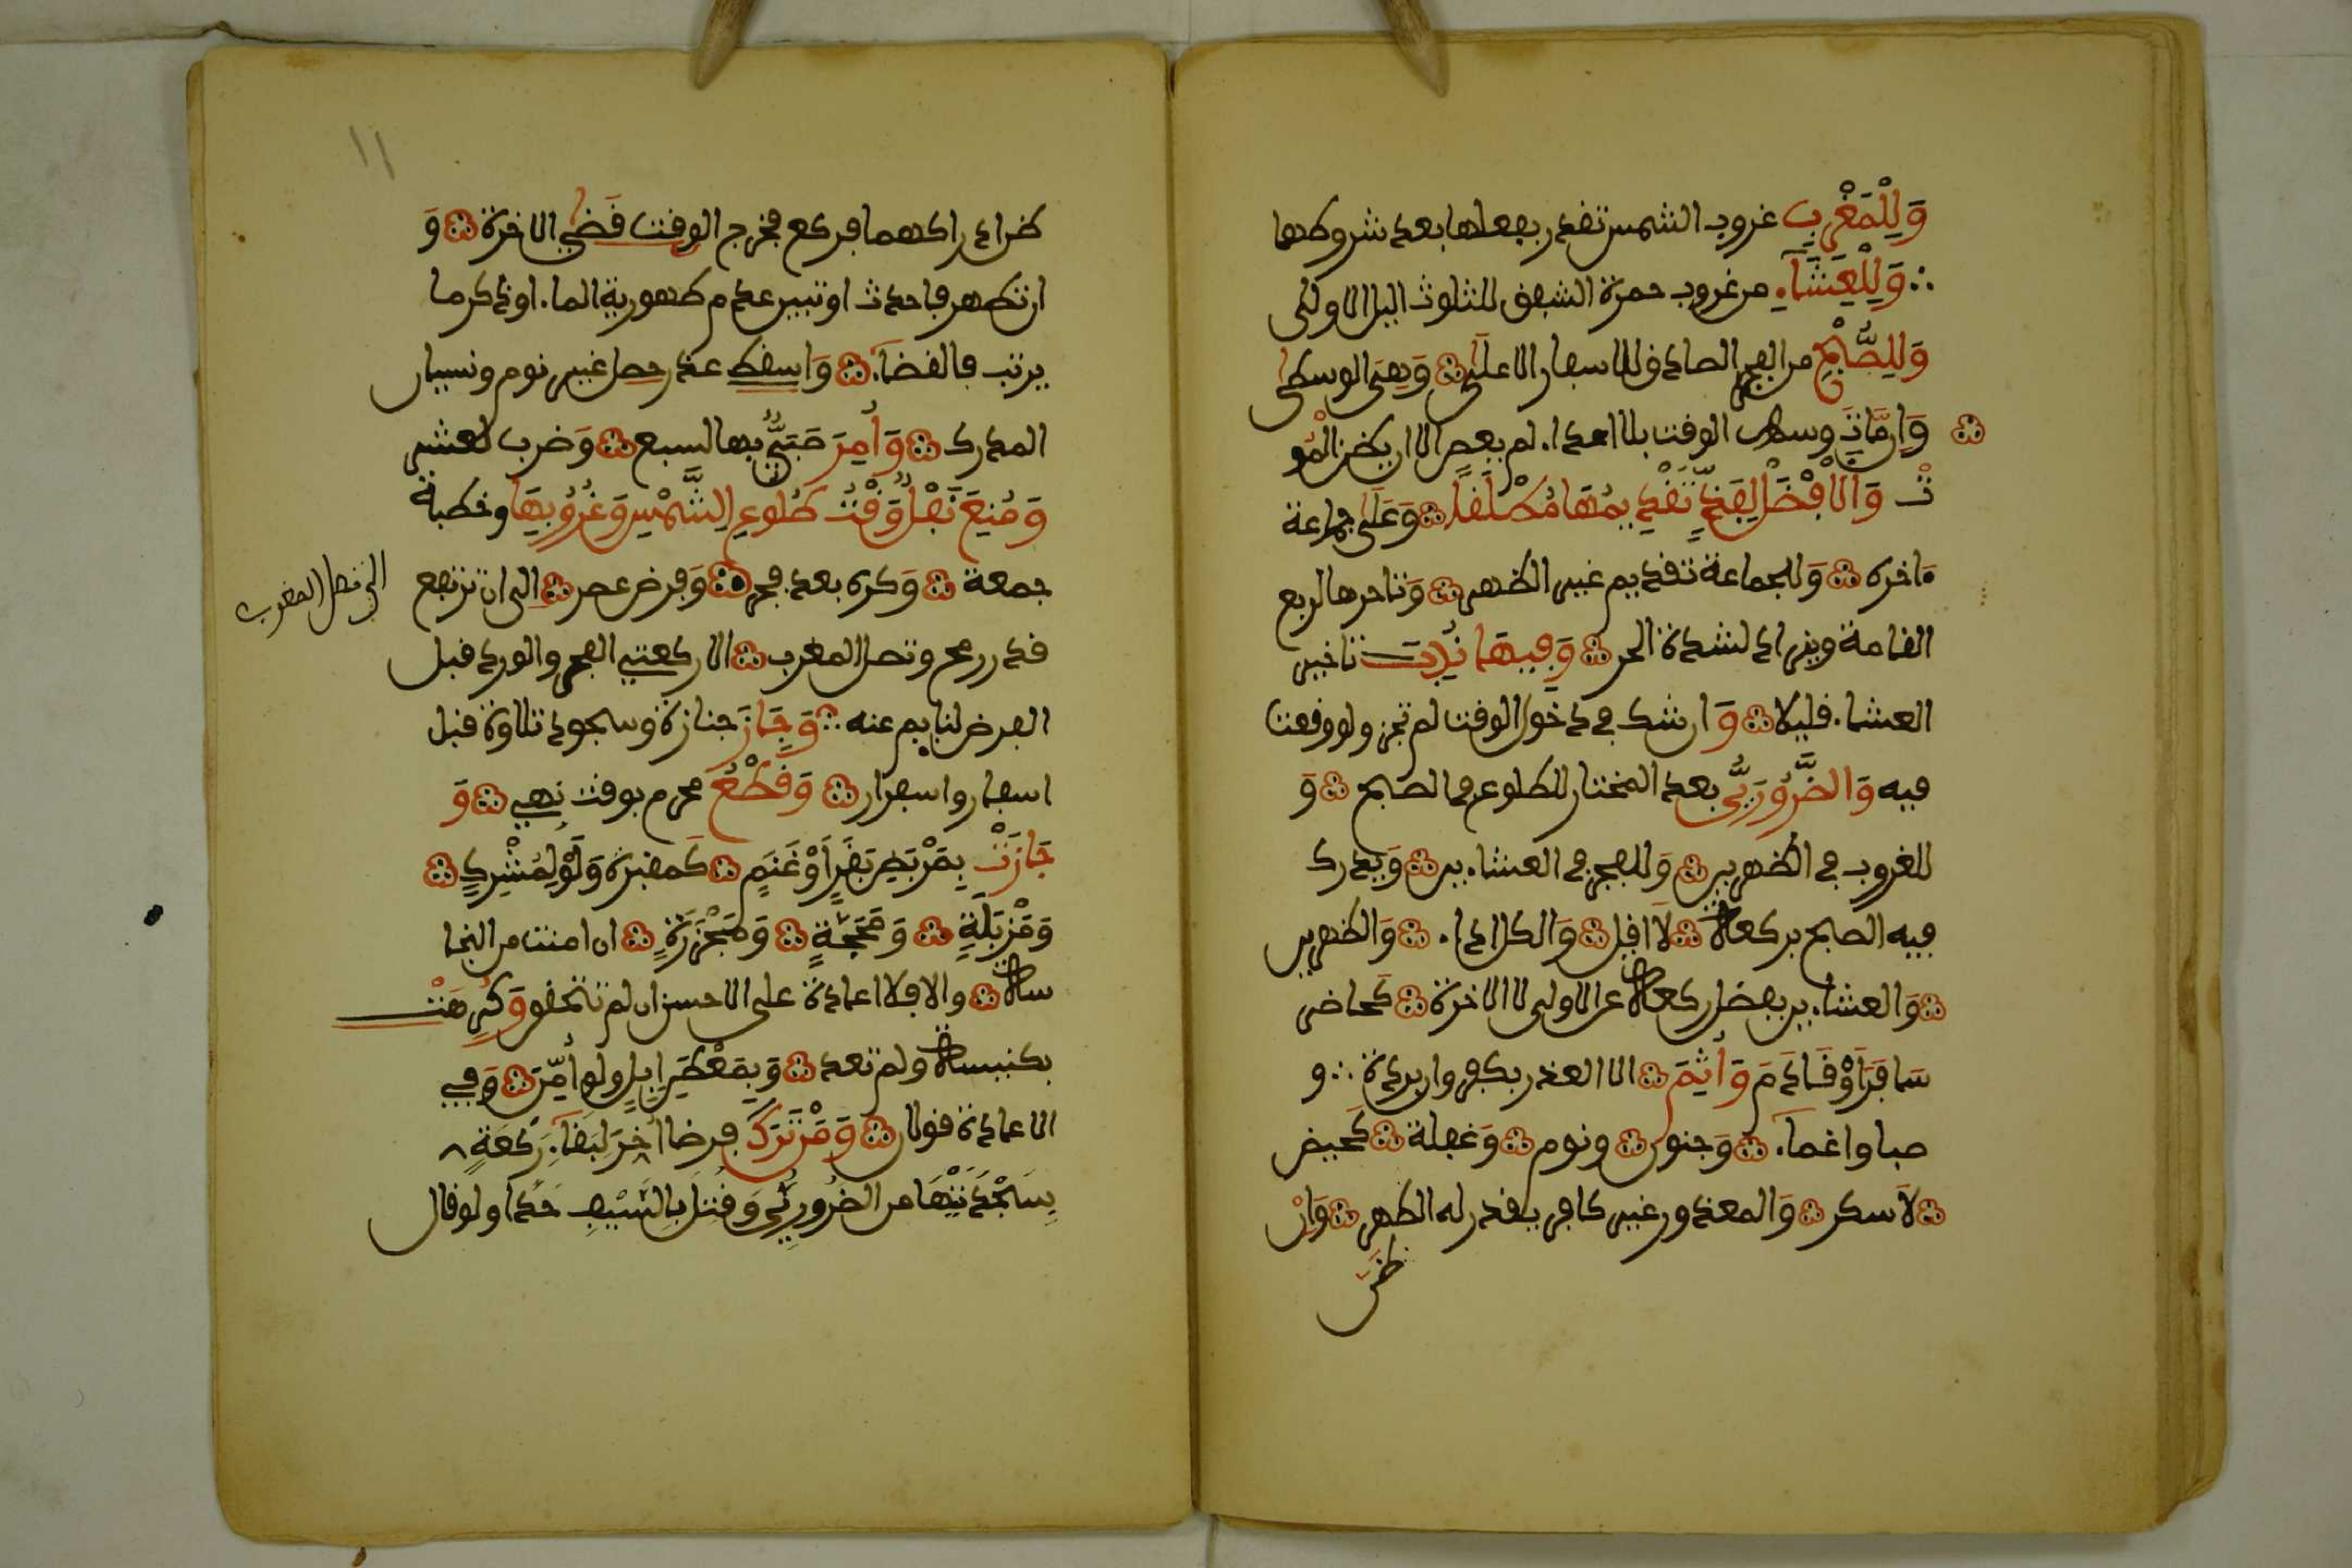 وَلِلْمَغْرِبِ غروب الشمس تقدر بفعلها بعد شروطها
وَلِلْعِشَاءِ من غروب حمرة الشفق للثلث اليل الاولى
وَلِلصُّبْحِ من الفجر الصادق للاسفار الاعلى وَهِيَ الوسطى
وَاِن مَّاتَ وسط الوقت بلا اداء لم يعص الا ان يظن الْمَوْ
تَ وَالْاَفْضَلُ لِفَذٍّ تَقْدِيمُهَا مُطْلَقًا وَعَلَى جماعة
ءاخره وَللجماعة تقديم غير الظهر وَتاخرها لربع
القامة ويزاد لشدة الحر وَفِيهَا نُدِبَ تاخير
العشاء قليلا وَان شك في دخول الوقت لم تجز ولو وقعت
فيه وَالضَّرُورِيُّ بعد المختار للطلوع في الصبح وَ
للغروب في الظهرين وَللفجر في العشاءين وَيدرك
فيه الصبح بركعة لَا اقل وَالكل اداء وَالظهرين
وَالعشاءين بفضل ركعة عن الاولى لا الاخرة كَحاضر
سَافَرَ أَوْ قَادَمَ وَأَثِمَ الا العذر بكفر وان بردة و
صبا واغماء وَجنون ونوم وَغفلة كَحيض
لَا سكر وَالمعذور غير كافر يقدر له الطهر وَاِنْ
ظنَّ
١١
ظن ادراكهما فركع فخرج الوقت قَضَى الاخرة وَ
ان تطهر فاحدث او تبين عدم طهورية الماء او ذكر ما
يرتب فالقضاء وَاسقط عذر حصل غير نوم ونسيان
المدرك وَأُمِرَ صَبِيٌّ بها لسبع وَضرب لعشر
وَمُنِعَ نَفْلٌ وَقْتَ طُلُوعِ الشَّمْسِ وَغُرُوبِهَا وخطبة
جمعة وَكره بعد فجر وَفرض عصر الى ان ترتفع
الى تصل المغرب
قدر رمح وتصل المغرب الا ركعتي الفجر والورد قبل
الفرض لنايم عنه وَجَازَ جنازة وسجود تلاوة قبل
اسفار واسفرار وَقَطْعُ محرم بوقت نهي وَ
جَازَتْ بِمَرْبَضِ بَقَرٍ أَوْ غَنَمٍ كَمقبرة وَلَوْ لِمُشْرِكٍ
وَمَزْبَلَةٍ وَمَحَجَّةٍ وَمَجْزَرَةٍ ان امنت من النجا
سة والا فلا اعادة على الاحسن ان لم تتحقق وَكُرِهَتْ
بكنيسة ولم تعد وَبِمَعْطِنِ اِبِلٍ ولو أُمِّنَ وَفِي
الاعادة قولان وَمَنْ تَرَكَ فرضا أُخِّرَ لِبَقَاءِ رَكْعَةٍ
بِسَجْدَتَيْهَا من الضُرُورِيِّ وَقُتِلَ بِالسَّيْفِ حَدًّا ولو قال